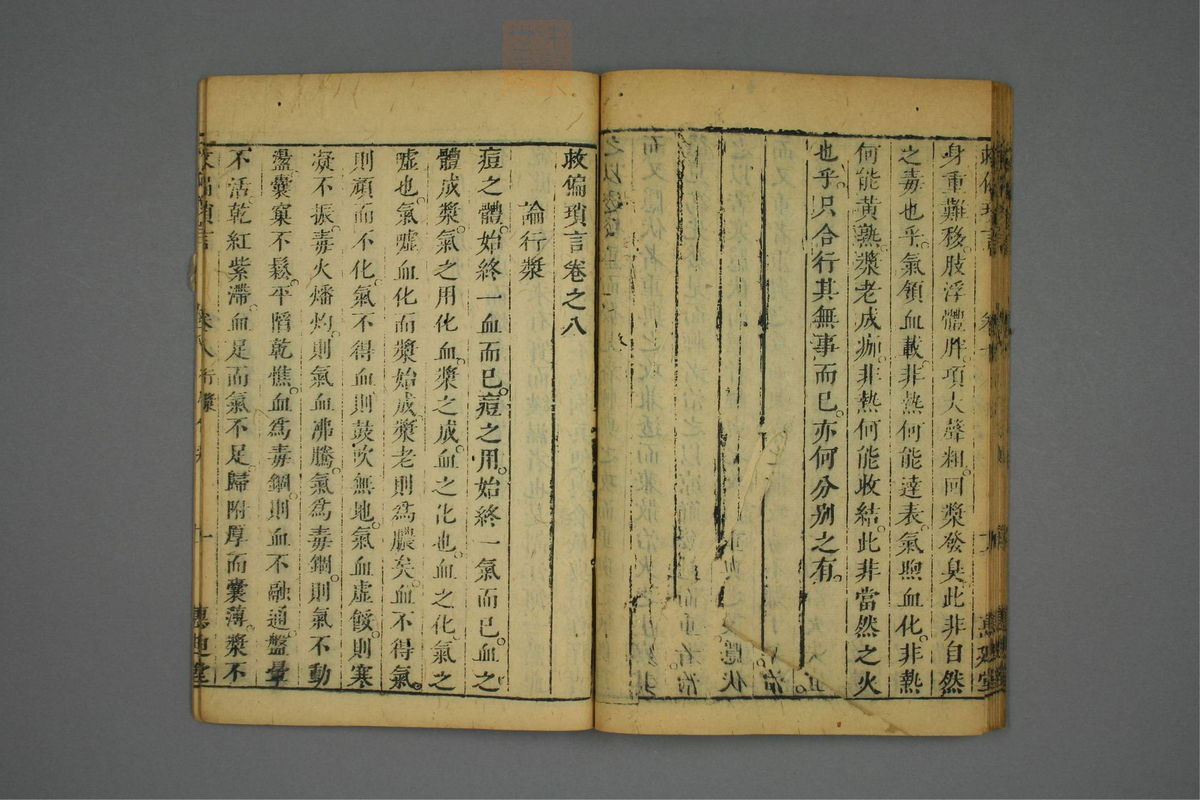 身重難移肢浮體胖項大聲粗回漿發臭此非自然
之毒也乎氣領血載非熱何能達表氣煦血化非熱
何能黃熟漿老成痂非熱何能收結此非當然之火
也乎只合行其無事而已亦何分別之有
救偏瑣言卷之八
論行漿
痘之體始終一血而已痘之用始終一氣而已血之
體成漿氣之用化血漿之成血之化也血之化氣之
噓也氣噓血化而漿始成漿老則爲膿矣血不得氣
則頑而不化氣不得血則鼓吹無地氣血虛餒則寒
凝不振毒火燔灼則氣血沸騰氣爲毒錮則氣不動
盪囊窠不鬆平塌乾憔血爲毒錮則血不融通盤暈
不活乾紅紫滯血足而氣不足歸附厚而囊薄漿不
救偏瑣言 卷八 行漿 一 惠迪堂